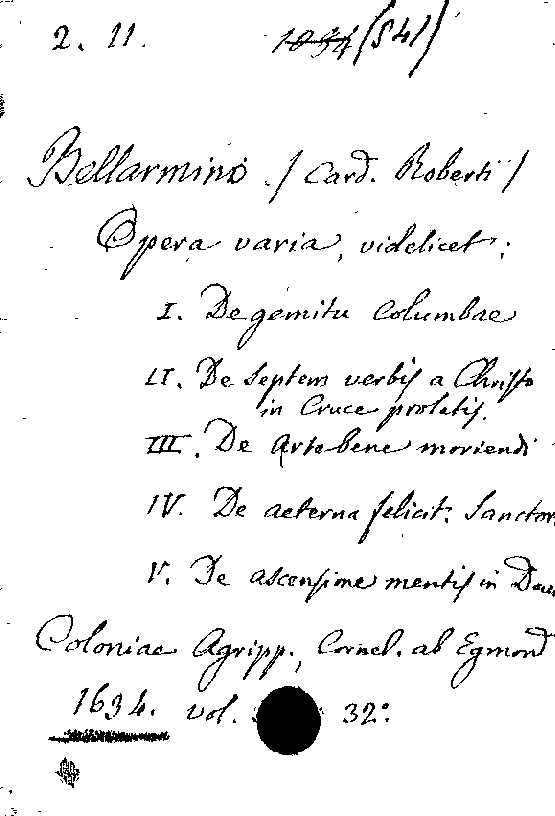 2. 11. 1034 (541)
Bellarmino ./ Card. Roberti /
Opera varia, videlicet:
I. De gemitu Columbae
II. De septem verbis a Christo
in Cruce prolatis.
III. De Arte bene moriendi
IV. De aeterna felicit: Sanctor
V. De ascensione mentis in Deu
Coloniae Agripp., Cornel. ab Egmond
1634. vol. 32º.